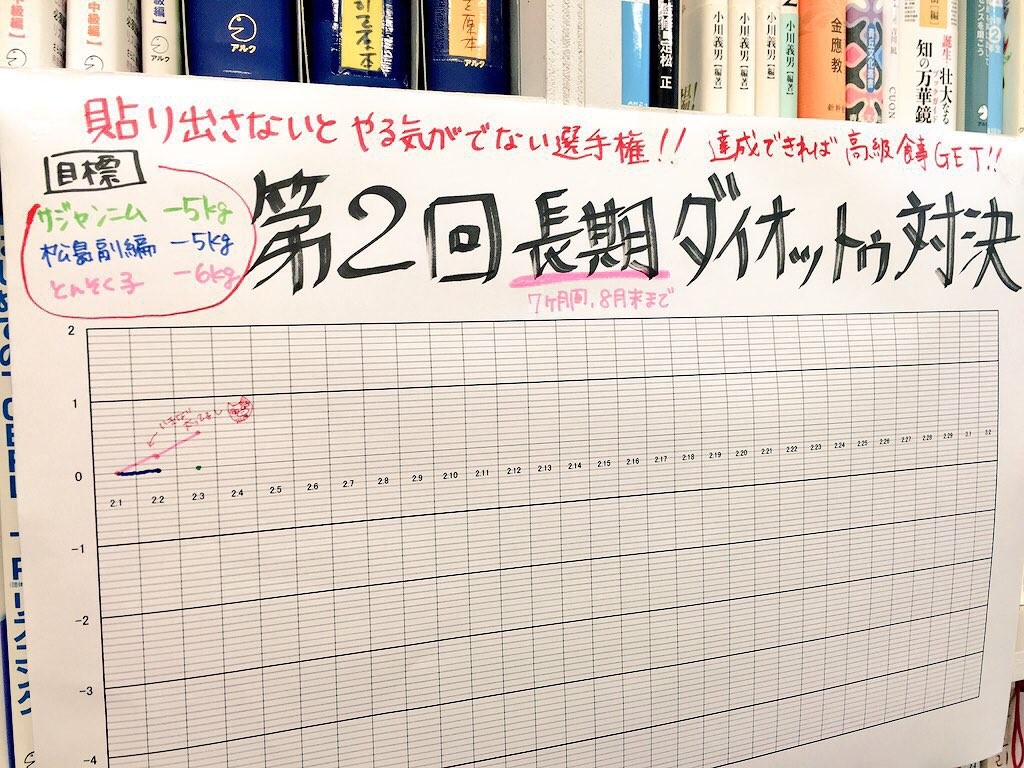 中級編
中級編
アルク
アルク
アルク
小川義男[編著]
小川義男[編著]
小川義男[編著]
小川義男[編著]
金應教
CUON
知の万華鏡
誕生・壮大なる
貼り出さないと やる気がでない選手権!! 達成できれば 高級食事GET!!
目標
サジャンニム -5kg
松島副編 -5kg
とんそく子 -6kg
第2回 長期 ダイオットゥ 対決
7ヶ月間、8月末まで
2
1
0
-1
-2
-3
-4
2.1 2.2 2.3 2.4 2.5 2.6 2.7 2.8 2.9 2.10 2.11 2.12 2.13 2.14 2.15 2.16 2.17 2.18 2.19 2.20 2.21 2.22 2.23 2.24 2.25 2.26 2.27 2.28 2.29 3.1 3.2